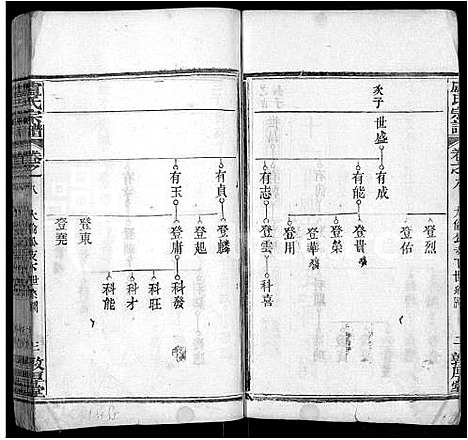 次子
世盛
有成
有能
有志
登烈
登佑
登貴
登榮
登華
登用
登雲
科喜
卷之八
二
敦厚堂
有貞
有玉
登麟
登起
登庸
登東
登堯
科發
科旺
科才
科能
盧氏宗譜
卷之八
三
敦厚堂